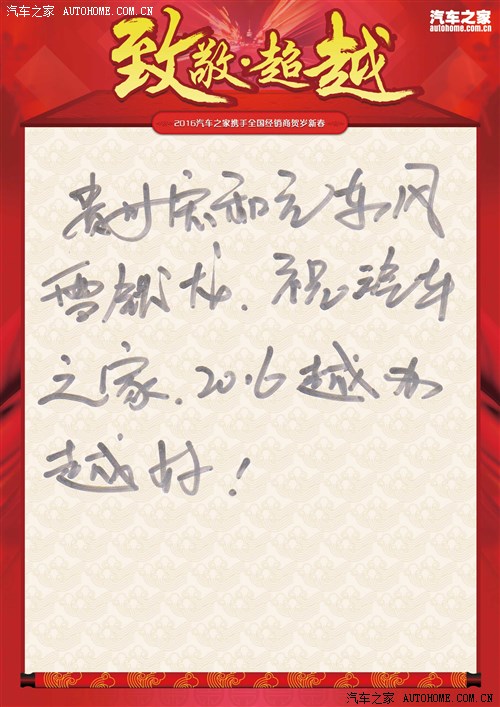 汽车之家 AUTOHOME.COM.CN
汽车之家
autohome.com.cn
致敬·超越
2016汽车之家携手全国经销商贺岁新春
贵州宏和元东风
雪铁龙.祝汽车
之家.2016越办
越好!
汽车之家 AUTOHOME.COM.CN